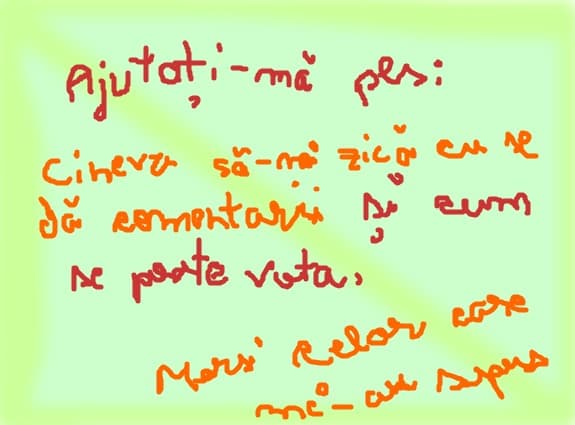 Ajutați-mă pls:
Cineva să-mă zică cu se
dă comentarii și cum
se poate vota.
Mersi celor care
mă-au supus